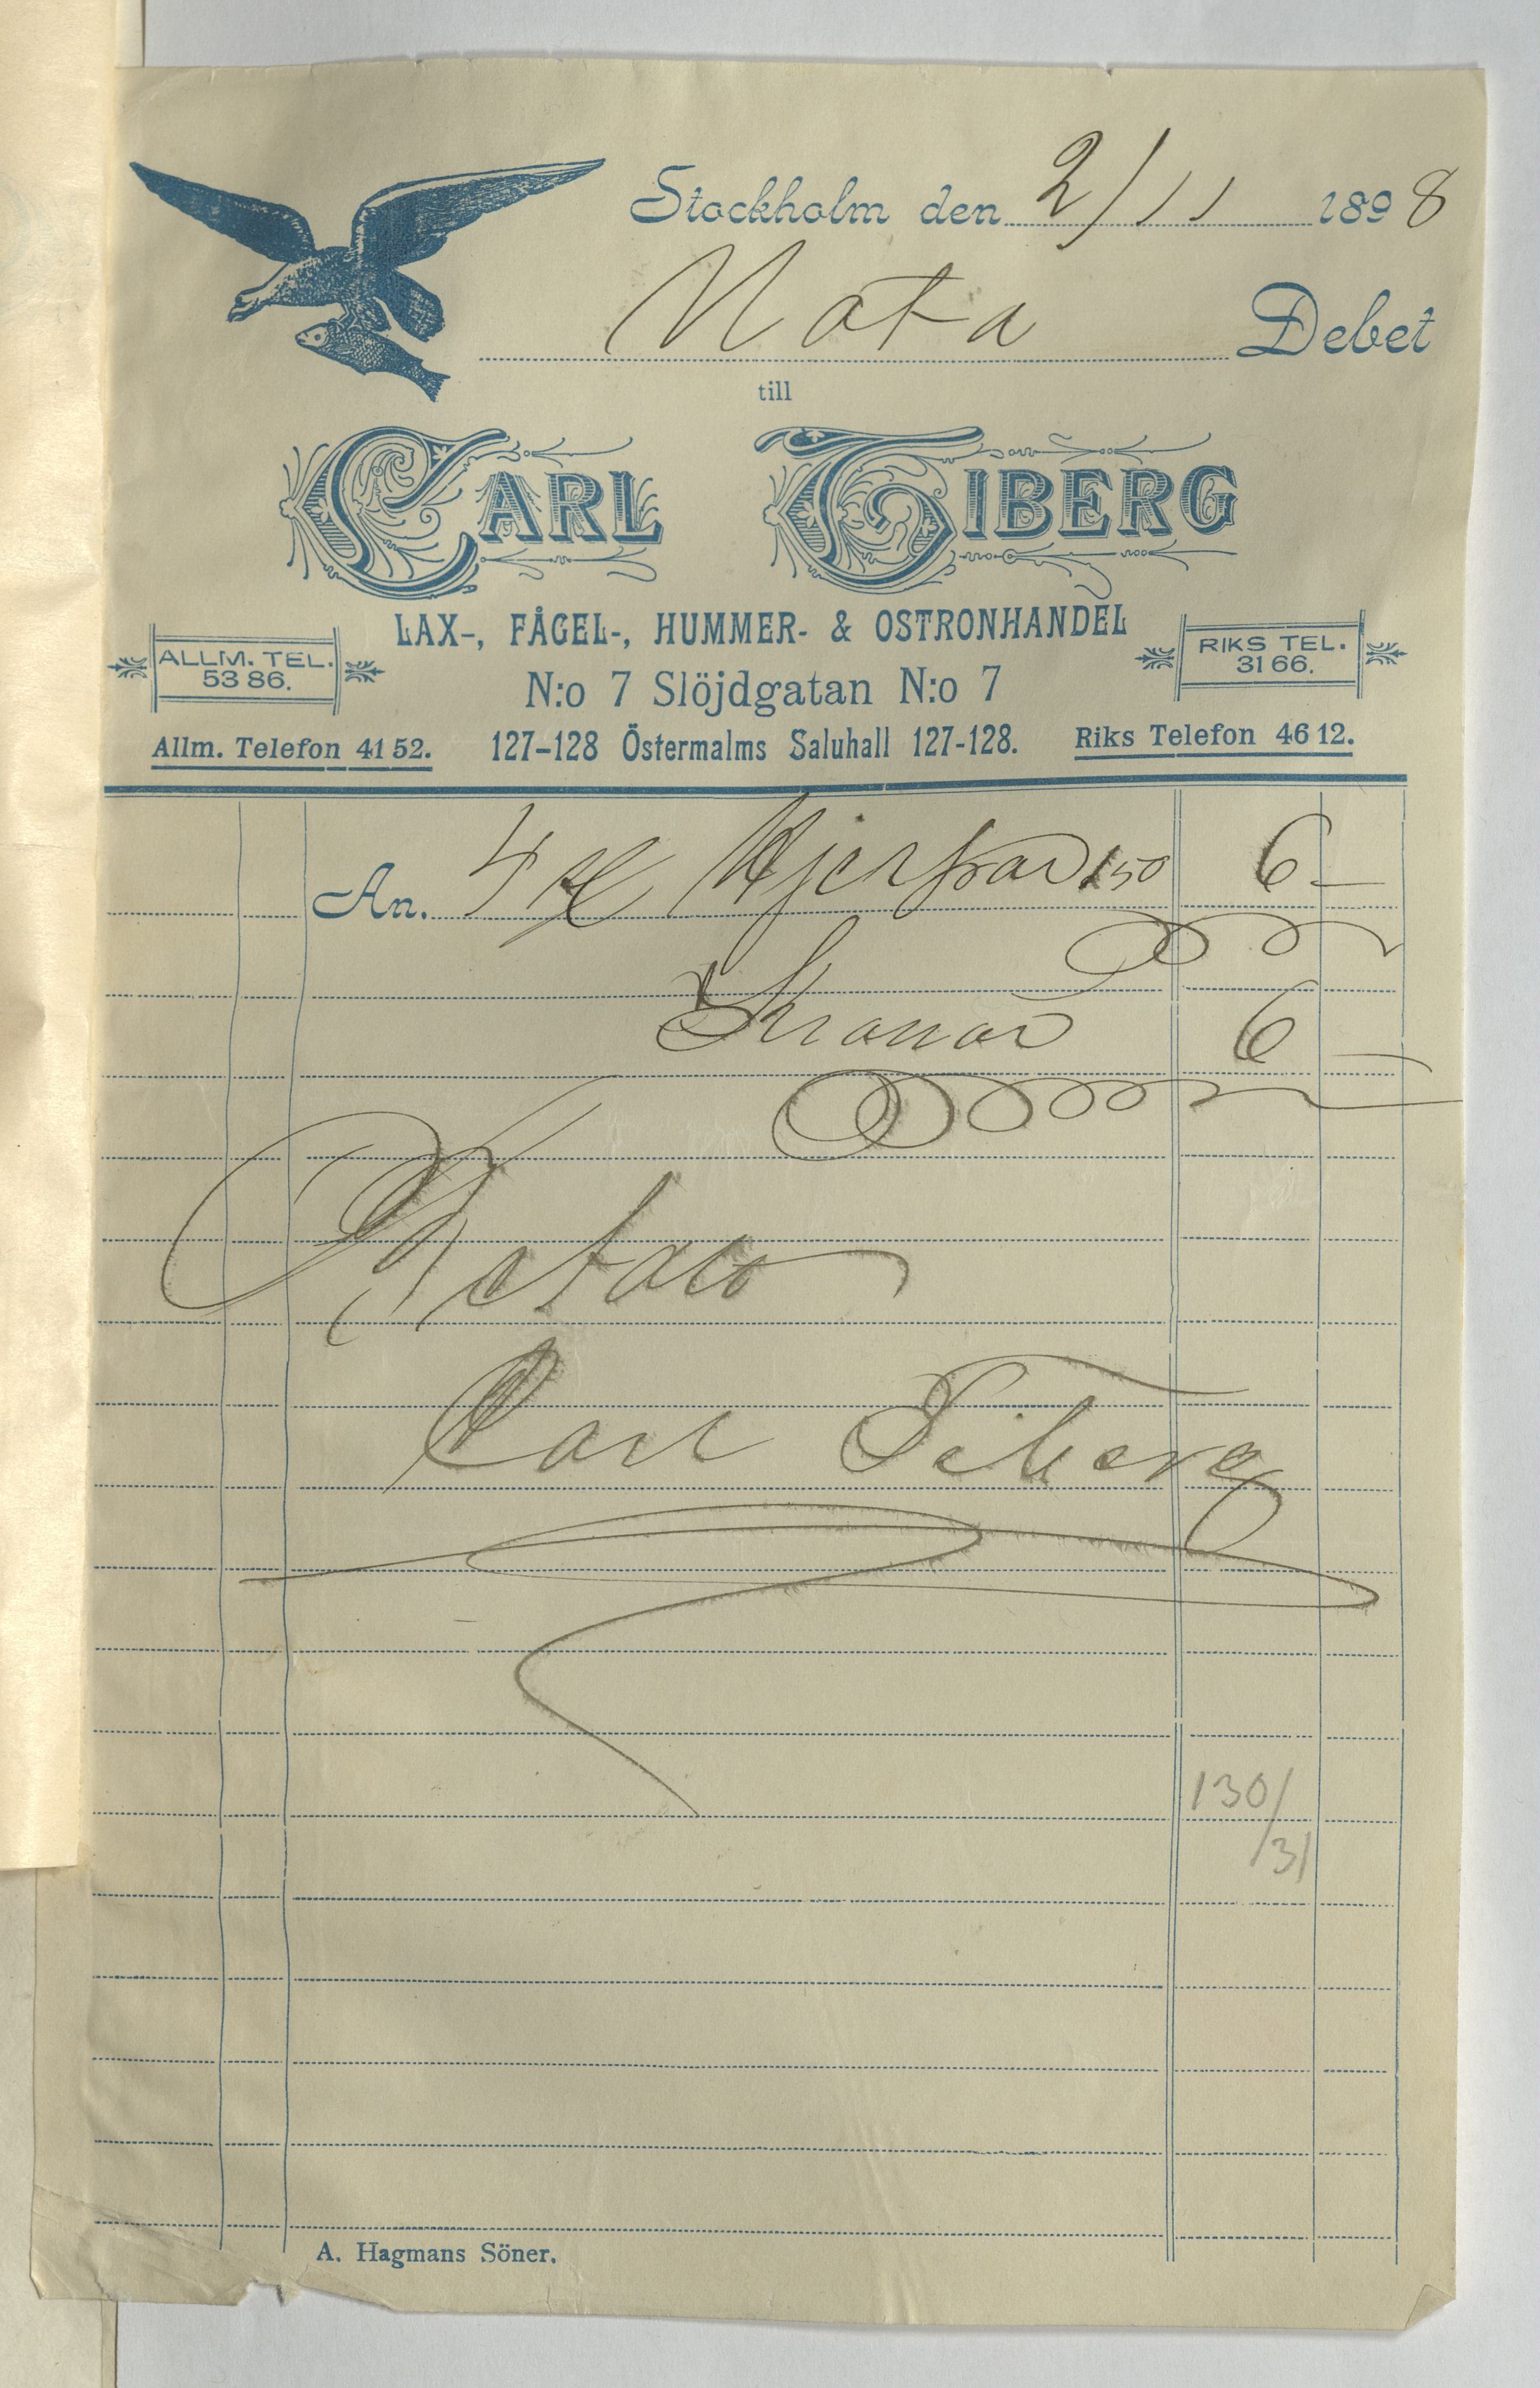 Stockholm den 2/11 1898
Nota Debet
till
CARL TIBERG
LAX-, FÅGEL-, HUMMER- & OSTRONHANDEL
ALLM. TEL. 53 86.
RIKS TEL. 31 66.
N:o 7 Slöjdgatan N:o 7
Allm. Telefon 41 52. 127-128 Östermalms Saluhall 127-128. Riks Telefon 46 12.
An. 4 st Hjerpar 1.50 6 -
Kronor 6 -
Betalt
Carl Tiberg
130/
31
A. Hagmans Söner.